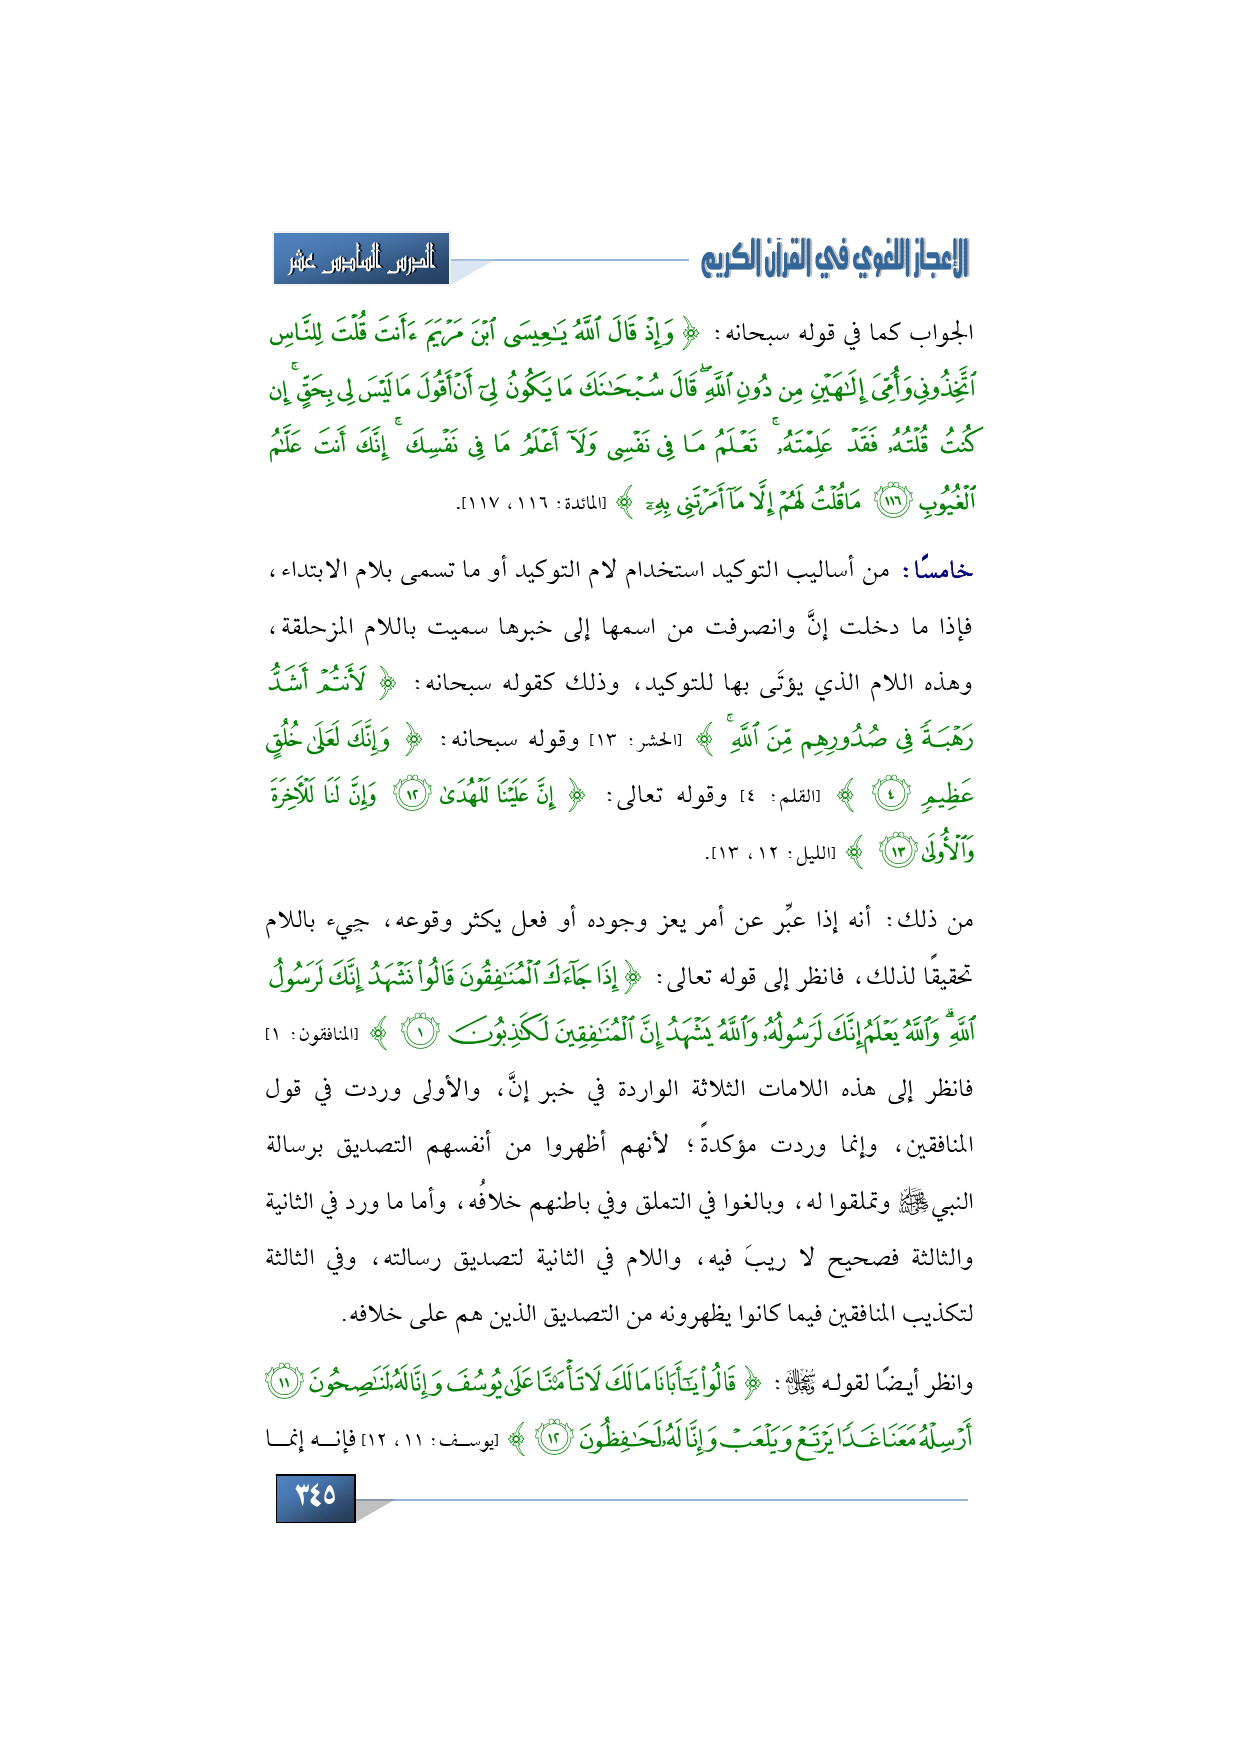 الإعجاز اللغوي في القرآن الكريم
الدرس السادس عشر
الجواب كما في قوله سبحانه: ﴿ وَإِذْ قَالَ ٱللَّهُ يَـٰعِيسَى ٱبْنَ مَرْيَمَ ءَأَنتَ قُلْتَ لِلنَّاسِ
ٱتَّخِذُونِى وَأُمِّىَ إِلَـٰهَيْنِ مِن دُونِ ٱللَّهِ ۖ قَالَ سُبْحَـٰنَكَ مَا يَكُونُ لِىٓ أَنْ أَقُولَ مَا لَيْسَ لِى بِحَقٍّ ۚ إِن
كُنتُ قُلْتُهُۥ فَقَدْ عَلِمْتَهُۥ ۚ تَعْلَمُ مَا فِى نَفْسِى وَلَآ أَعْلَمُ مَا فِى نَفْسِكَ ۚ إِنَّكَ أَنتَ عَلَّـٰمُ
ٱلْغُيُوبِ ١١٦ مَا قُلْتُ لَهُمْ إِلَّا مَآ أَمَرْتَنِى بِهِۦٓ ﴾ [المائدة: ١١٦، ١١٧].
خامسًا: من أساليب التوكيد استخدام لام التوكيد أو ما تسمى بلام الابتداء،
فإذا ما دخلت إنَّ وانصرفت من اسمها إلى خبرها سميت باللام المزحلقة،
وهذه اللام الذي يؤتَى بها للتوكيد، وذلك كقوله سبحانه: ﴿ لَأَنتُمْ أَشَدُّ
رَهْبَةً فِى صُدُورِهِم مِّنَ ٱللَّهِ ۚ ﴾ [الحشر: ١٣] وقوله سبحانه: ﴿ وَإِنَّكَ لَعَلَىٰ خُلُقٍ
عَظِيمٍ ٤ ﴾ [القلم: ٤] وقوله تعالى: ﴿ إِنَّ عَلَيْنَا لَلْهُدَىٰ ١٢ وَإِنَّ لَنَا لَلْأَخِرَةَ
وَٱلْأُولَىٰ ١٣ ﴾ [الليل: ١٢، ١٣].
من ذلك: أنه إذا عبِّر عن أمر يعز وجوده أو فعل يكثر وقوعه، جِيء باللام
تحقيقًا لذلك، فانظر إلى قوله تعالى: ﴿ إِذَا جَآءَكَ ٱلْمُنَـٰفِقُونَ قَالُوا۟ نَشْهَدُ إِنَّكَ لَرَسُولُ
ٱللَّهِ ۗ وَٱللَّهُ يَعْلَمُ إِنَّكَ لَرَسُولُهُۥ وَٱللَّهُ يَشْهَدُ إِنَّ ٱلْمُنَـٰفِقِينَ لَكَـٰذِبُونَ ١ ﴾ [المنافقون: ١]
فانظر إلى هذه اللامات الثلاثة الواردة في خبر إنَّ، والأولى وردت في قول
المنافقين، وإنما وردت مؤكدةً؛ لأنهم أظهروا من أنفسهم التصديق برسالة
النبي ﷺ وتملقوا له، وبالغوا في التملق وفي باطنهم خلافُه، وأما ما ورد في الثانية
والثالثة فصحيح لا ريبَ فيه، واللام في الثانية لتصديق رسالته، وفي الثالثة
لتكذيب المنافقين فيما كانوا يظهرونه من التصديق الذين هم على خلافه.
وانظر أيضًا لقوله سبحانه وتعالى: ﴿ قَالُوا۟ يَـٰٓأَبَانَا مَا لَكَ لَا تَأْمَ۫نَّا عَلَىٰ يُوسُفَ وَإِنَّا لَهُۥ لَنَـٰصِحُونَ ١١
أَرْسِلْهُ مَعَنَا غَدًا يَرْتَعْ وَيَلْعَبْ وَإِنَّا لَهُۥ لَحَـٰفِظُونَ ١٢ ﴾ [يوسف: ١١، ١٢] فإنه إنما
٣٤٥